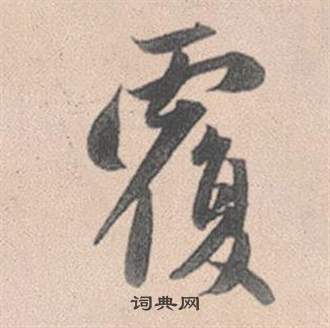 覆
词典网